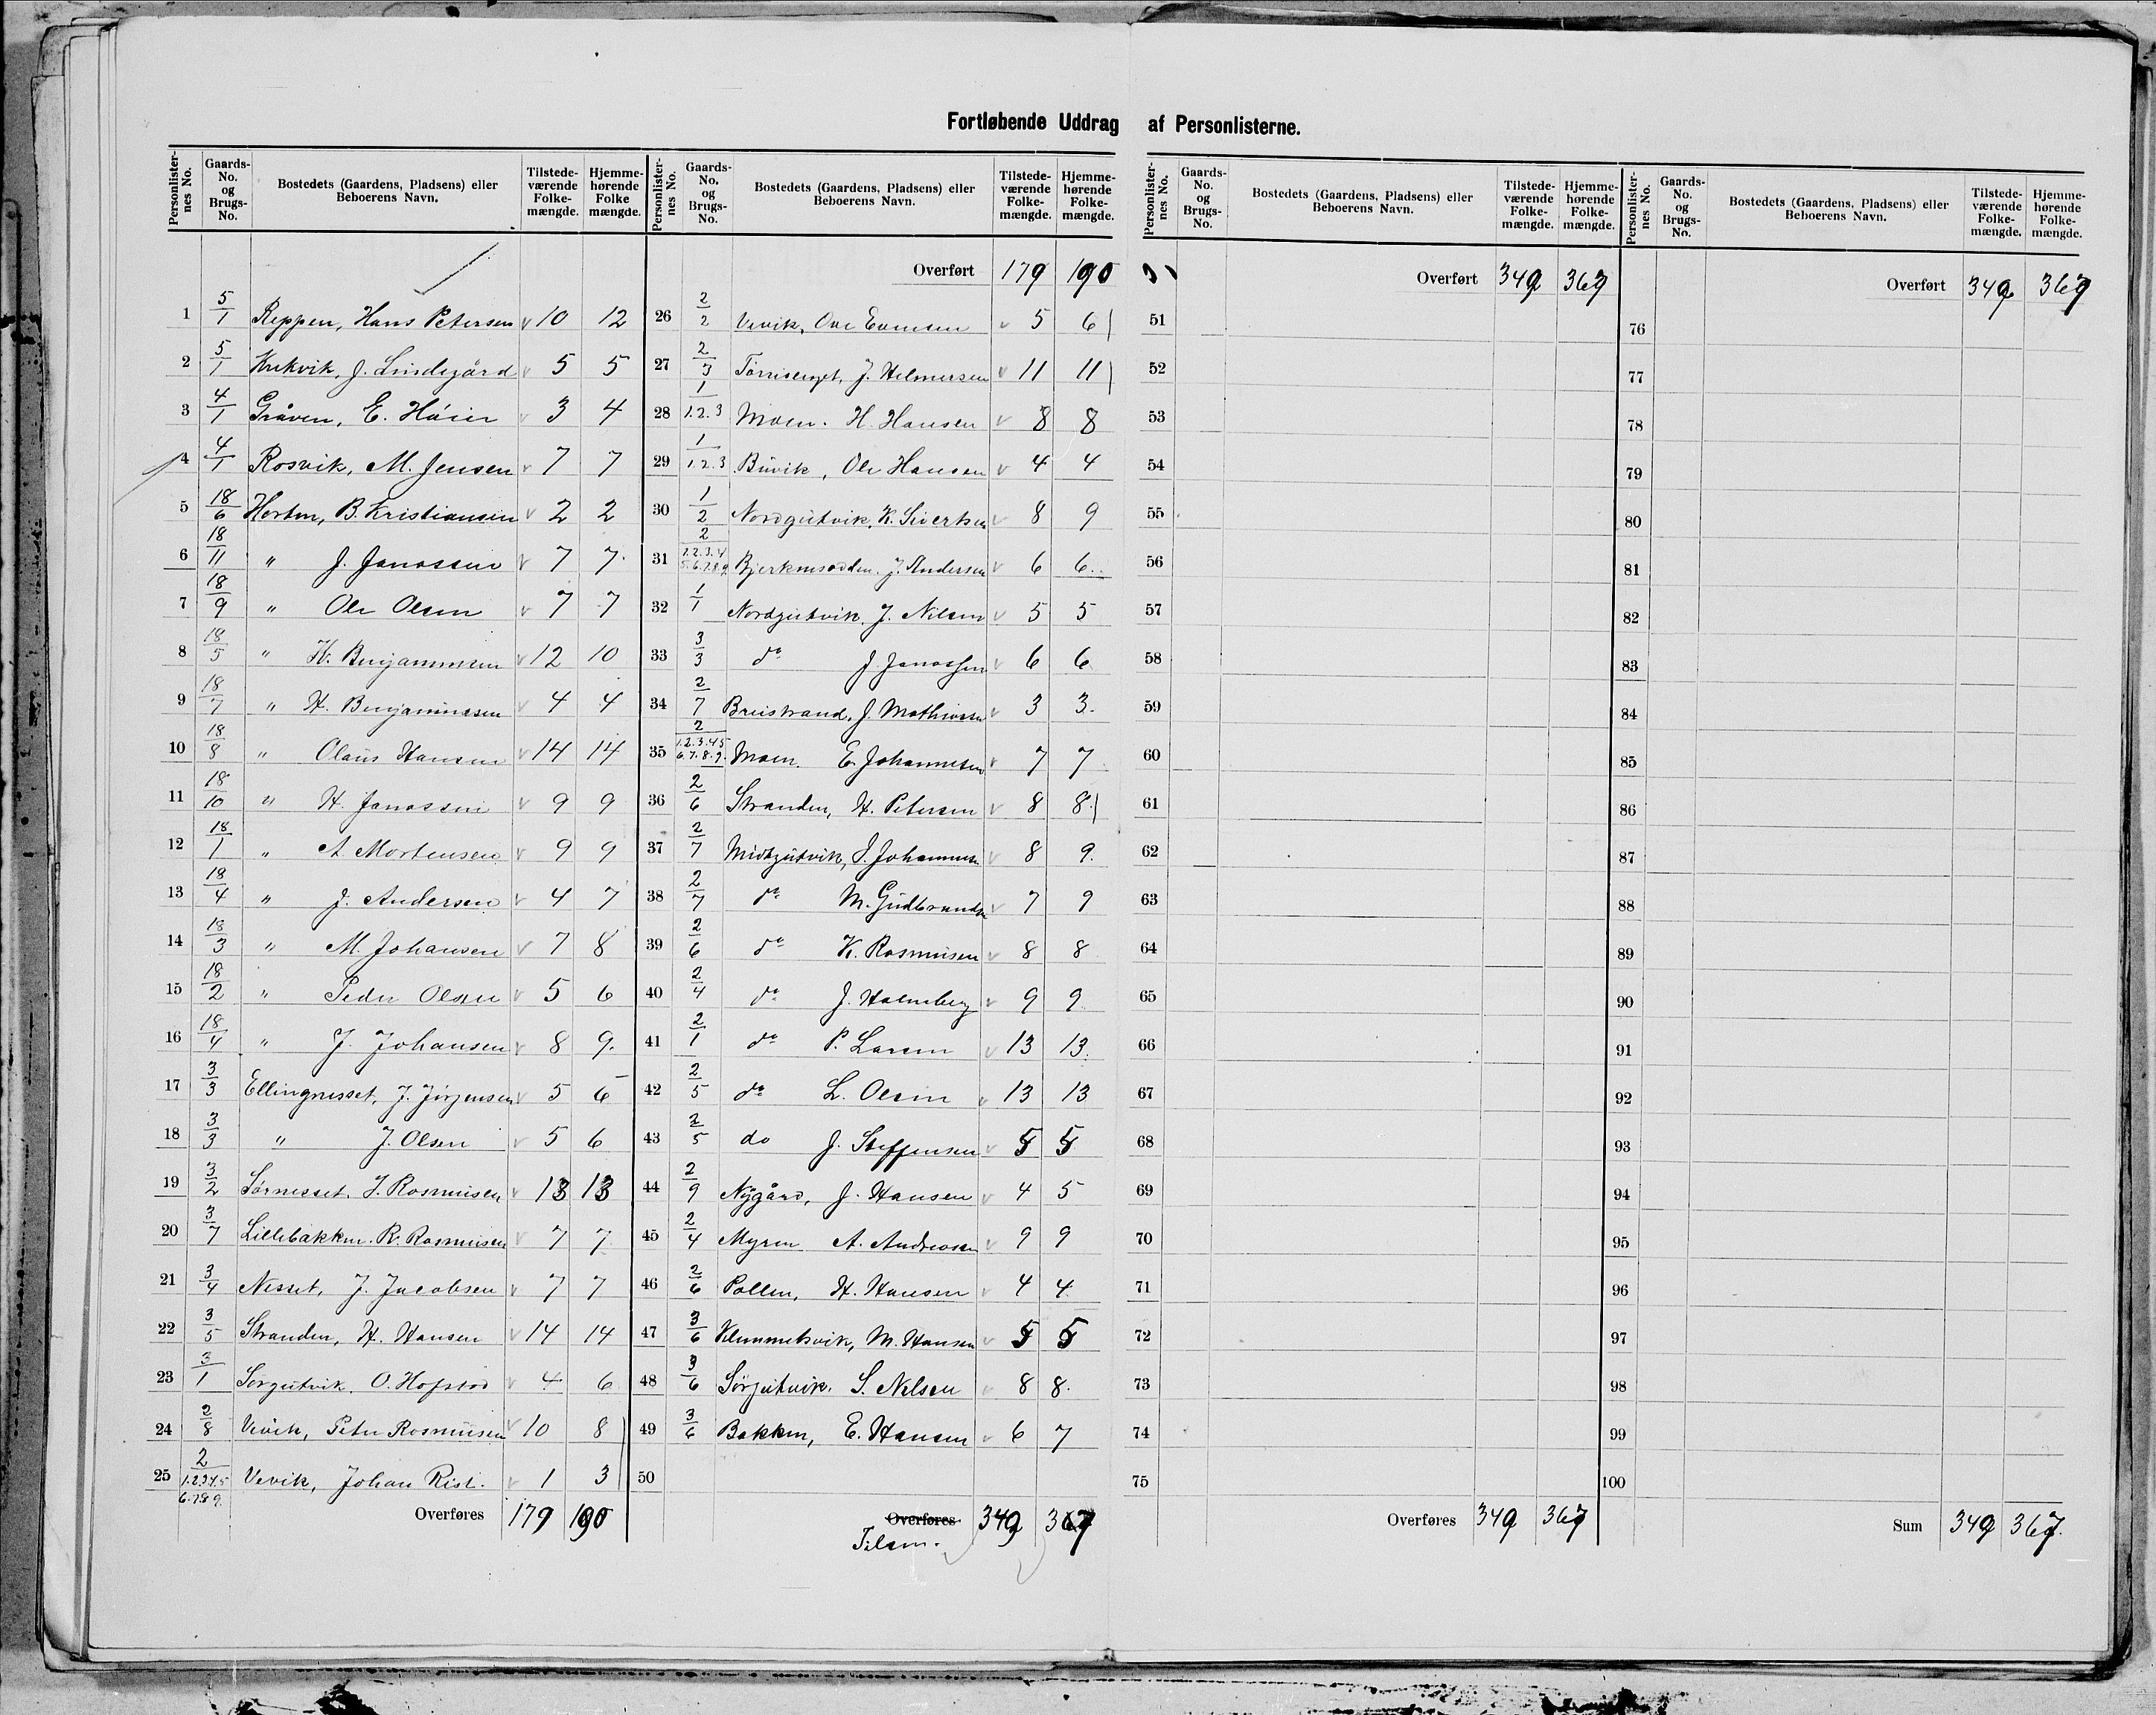 Fortløbende Uddrag af Personlisterne.
Personlister-nes No. Gaards-No. og Brugs-No. Bostedets (Gaardens, Pladsens) eller Beboerens Navn. Tilstede-værende Folke-mængde. Hjemme-hørende Folke mængde.
1 5/1 Reppen, Hans Petersen 10 12
2 5/1 Krekvik, J. Lindegård 5 5
3 4/1 Gråven, E. Høier 3 4
4 4/1 Rosvik, M. Jensen 7 7
5 18/6 Horten, B. Kristiansen 2 2
6 18/11 " J. Jonassen 7 7
7 18/9 " Ole Olsen 7 7
8 18/5 " K. Benjaminsen 12 10
9 18/7 " H. Benjaminsen 4 4
10 18/8 " Olaus Hansen 14 14
11 18/10 " H. Jonassen 9 9
12 18/1 " A. Mortensen 9 9
13 18/4 " J. Andersen 4 7
14 18/3 " M. Johansen 7 8
15 18/2 " Peder Olsen 5 6
16 18/4 " J. Johansen 8 9.
17 3/3 Ellingnesset, J. Jörgensen 5 6
18 3/3 " J. Olsen 5 6
19 3/2 Sörnesset, J. Rasmusen 13 13
20 3/7 Lillebakken. R. Rasmusen 7 7
21 3/4 Nesset, J. Jacobsen 7 7
22 3/5 Stranden, H. Hansen 14 14
23 3/1 Sörgutvik. O. Hofstad 4 6
24 2/8 Vevik, Peter Rasmusen 10 8
25 2/1.2.3.4.5 6.7.8.9. Vevik, Johan Rist. 1 3
Overføres 179 190
Personlister-nes No. Gaards-No. og Brugs-No. Bostedets (Gaardens, Pladsens) eller Beboerens Navn. Tilstede-værende Folke-mængde. Hjemme-hørende Folke-mængde.
Overført 179 190
26 2/2 Vevik, Ove Evensen 5 6
27 2/3 J. Helmersen 11 11
28 1/1.2.3 Moen. H. Hansen 8 8
29 1/1.2.3 Buvik, Ole Hansen 4 4
30 1/2 Nordgutvik, K. Sivertsen 8 9
31 2/1.2.3.4 5.6.7.8.9 Bjerkmoodden. J. Andersen 6 6.
32 1/1 Nordgutvik, J. Nilsen 5 5
33 3/3 do J. Jonassen 6 6
34 2/7 Breistrand, J. Mathiasen 3 3.
35 2/1.2.3.4.5 6.7.8.9. Moen. E. Johannesen 7 7
36 2/6 Stranden, H. Petersen 8 8
37 2/7 Midtgutvik, J. Johannesen 8 9.
38 2/7 do M. Gudbrands 7 9
39 2/6 do K. Rasmusen 8 8
40 2/4 do J. Holmberg 9 9
41 2/1 do P. Larsen 13 13.
42 2/5 do L. Olsen 13 13
43 2/5 do J. Steffensen 5 5
44 2/9 Nygård, J. Hansen 4 5
45 2/4 Myren A. Andreasen 9 9
46 2/6 Pollen, H. Hansen 4 4
47 3/6 Klemmetsvik, M. Hansen 5 5
48 3/6 Sörgutvik, S. Nilsen 8 8.
49 3/6 Bakken, E. Hansen 6 7
50
Overføres 349 367
Tilsm.
Personlister-nes No. Gaards-No. og Brugs-No. Bostedets (Gaardens, Pladsens) eller Beboerens Navn. Tilstede-værende Folke-mængde. Hjemme-hørende Folke-mængde.
Overført 349 367
51
52
53
54
55
56
57
58
59
60
61
62
63
64
65
66
67
68
69
70
71
72
73
74
75
Overføres 349 367
Personlister-nes No. Gaards-No. og Brugs-No. Bostedets (Gaardens, Pladsens) eller Beboerens Navn. Tilstede-værende Folke-mængde. Hjemme-hørende Folke-mængde.
Overført 349 367
76
77
78
79
80
81
82
83
84
85
86
87
88
89
90
91
92
93
94
95
96
97
98
99
100
Sum 349 367.